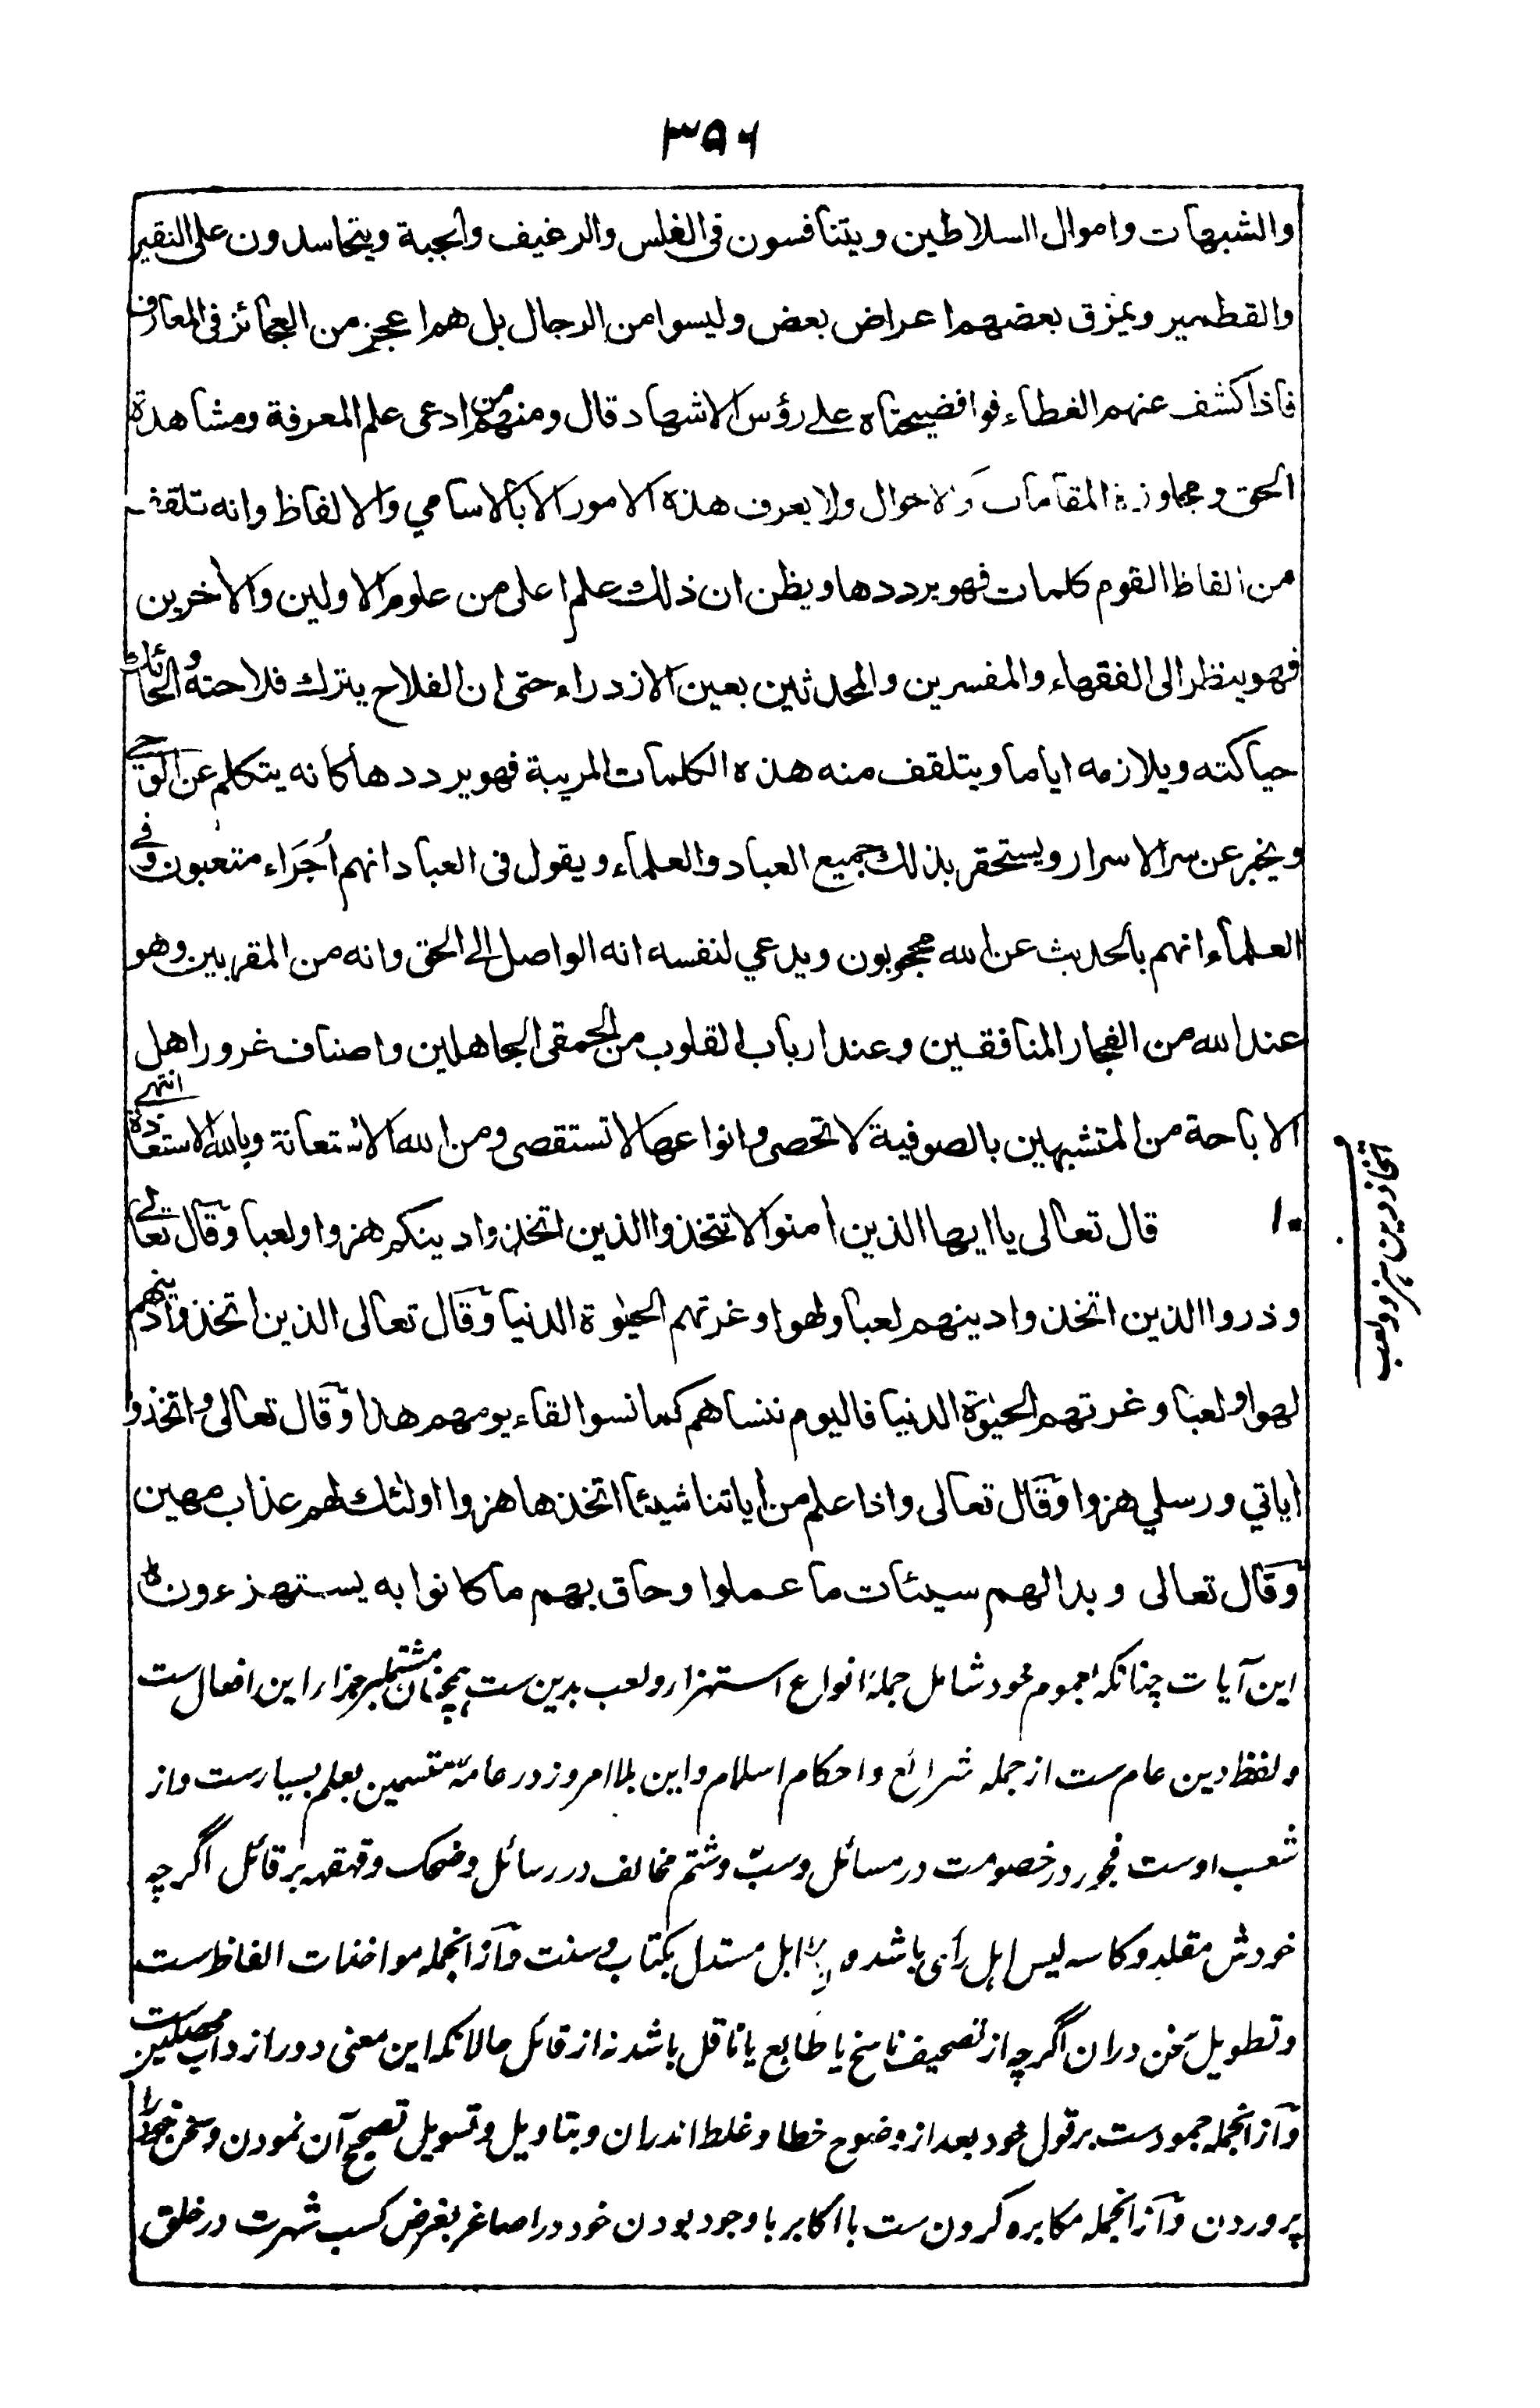 ٣٥٦
والشبهات واموال السلاطين ويتنافسون فى الفلس والرغيف والجبة ويتحاسدون على النقير
والقطمير ويمزق بعضهم اعراض بعض وليسوا من الرجال بل هم اعجز من العجائز فى المعارف
فاذا كشف عنهم الغطاء فوا فضيحتاه على رؤس الاشهاد قال ومنهم من ادعى علم المعرفة ومشاهدة
الحق ومجاوزة المقامات والاحوال ولا يعرف هذه الامور الا بالاسامي والالفاظ وانه تلقف
من الفاظ القوم كلمات فهو يرددها ويظن ان ذلك علم اعلى من علوم الاولين والاخرين
فهو ينظر الى الفقهاء والمفسرين والمحدثين بعين الازدراء حتى ان الفلاح يترك فلاحته والحائك
حياكته ويلازمه اياما ويتلقف منه هذه الكلمات المريبة فهو يرددها كانه يتكلم عن الوحي
ويخبر عن سر الاسرار ويستحقر بذلك جميع العباد والعلماء ويقول فى العباد انهم أُجَرَاء متعبون وفي
العلماء انهم بالحديث عن الله محجوبون ويدعي لنفسه انه الواصل الى الحق وانه من المقربين وهو
عند الله من الفجار المنافقين وعند ارباب القلوب من الحمقى الجاهلين واصناف غرور اهل
الاباحة من المتشبهين بالصوفية لا تحصى وانواعها لا تستقصى ومن الله الاستعانة وبالله الاستعاذة انتهى
١٠ قال تعالى يا ايها الذين امنوا لا تتخذوا الذين اتخذوا دينكم هزوا ولعبا وقال تعالى
وذروا الذين اتخذوا دينهم لعبا ولهوا وغرتهم الحيوة الدنيا وقال تعالى الذين اتخذوا دينهم
لهوا ولعبا وغرتهم الحيوة الدنيا فاليوم ننساهم كما نسوا لقاء يومهم هذا وقال تعالى واتخذوا
اياتي ورسلي هزوا وقال تعالى واذا علم من اياتنا شيئا اتخذها هزوا اولئك لهم عذاب مهين
وقال تعالى وبدا لهم سيئات ما عملوا وحاق بهم ما كانوا به يستهزءون
این آیات چنانکه بعموم خود شامل جملهٔ انواع استهزا و لعب بدین ست همچنان مشتمل بر جزای این افعال ست
و لفظ دین عام ست از جمله شرائع و احکام اسلام و این بلا امروز در عامهٔ متسمین بعلم بسیارست و از
شعب اوست فجور در خصومت در مسائل و سبّ و شتم مخالف در رسائل و ضحک و قهقهه بر قائل اگرچه
خودش مقلد و کاسه لیس اهل رأی باشد و مقابل مستدل بکتاب و سنت و ازانجمله مواخذات الفاظ ست
و تطویل سخن دران اگرچه از تصحیف ناسخ یا طابع یا ناقل باشد نه از قائل حالانکه این معنی دور از داب محصلین ست
و ازانجمله جمودست بر قول خود بعد از وضوح خطا و غلط اندران و بتاویل و تسویل تصحیح آن نمودن و سخن خود را
پروردن و ازانجمله مکابره کردن ست با اکابر با وجود بودن خود در اصاغر بغرض کسب شهرت در خلق
اتخاذ دین بهزو و لعب